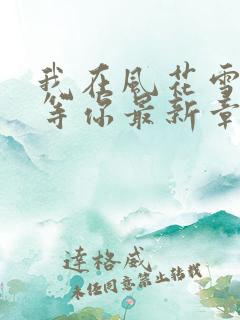 我在风花雪
等你最新章
達格威
未经同意禁止转载